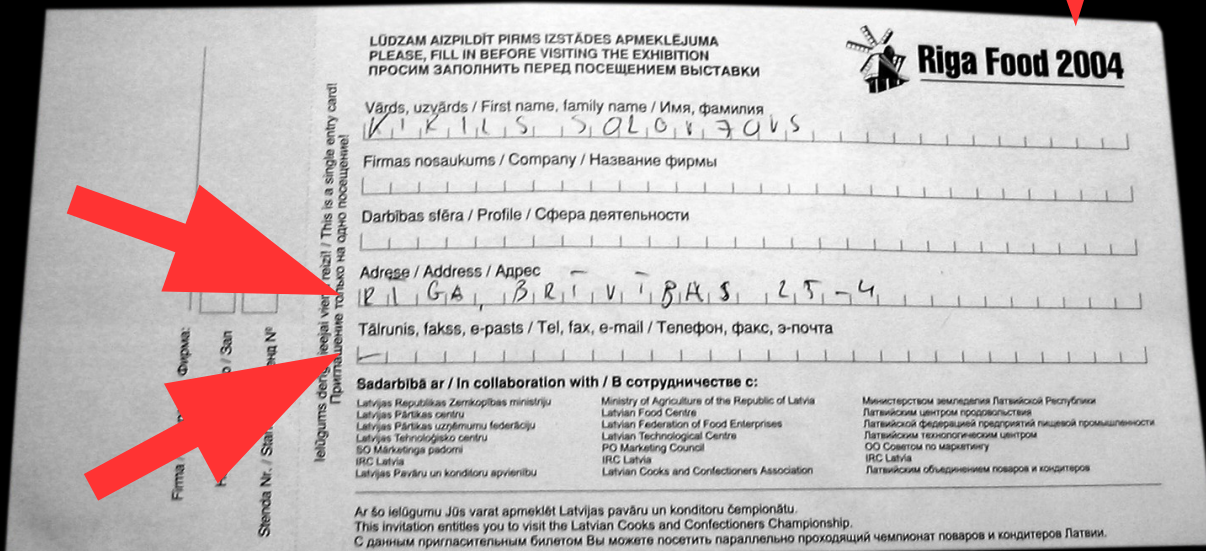 LŪDZAM AIZPILDĪT PIRMS IZSTĀDES APMEKLĒJUMA
PLEASE, FILL IN BEFORE VISITING THE EXHIBITION
ПРОСИМ ЗАПОЛНИТЬ ПЕРЕД ПОСЕЩЕНИЕМ ВЫСТАВКИ
Riga Food 2004
Vārds, uzvārds / First name, family name / Имя, фамилия
KIRILS SOLOVJOVS
Firmas nosaukums / Company / Название фирмы
Darbības sfēra / Profile / Сфера деятельности
Adrese / Address / Адрес
RĪGA, BRĪVĪBAS 25-4
Tālrunis, fakss, e-pasts / Tel, fax, e-mail / Телефон, факс, э-почта
–
Sadarbībā ar / In collaboration with / В сотрудничестве с:
Latvijas Republikas Zemkopības ministriju
Latvijas Pārtikas centru
Latvijas Pārtikas uzņēmumu federāciju
Latvijas Tehnoloģisko centru
SO Mārketinga padomi
IRC Latvia
Latvijas Pavāru un konditoru apvienību
Ministry of Agriculture of the Republic of Latvia
Latvian Food Centre
Latvian Federation of Food Enterprises
Latvian Technological Centre
PO Marketing Council
IRC Latvia
Latvian Cooks and Confectioners Association
Министерством земледелия Латвийской Республики
Латвийским центром продовольствия
Латвийской федерацией предприятий пищевой промышленности
Латвийским технологическим центром
ОО Советом по маркетингу
IRC Latvia
Латвийским объединением поваров и кондитеров
Ar šo ielūgumu Jūs varat apmeklēt Latvijas pavāru un konditoru čempionātu.
This invitation entitles you to visit the Latvian Cooks and Confectioners Championship.
С данным пригласительным билетом Вы можете посетить параллельно проходящий чемпионат поваров и кондитеров Латвии.
Ielūgums ieejai reizi! / This is a single entry card!
Приглашение только на одно посещение!
Firma / Фирма:
/ Зал
Stenda Nr. / Nº